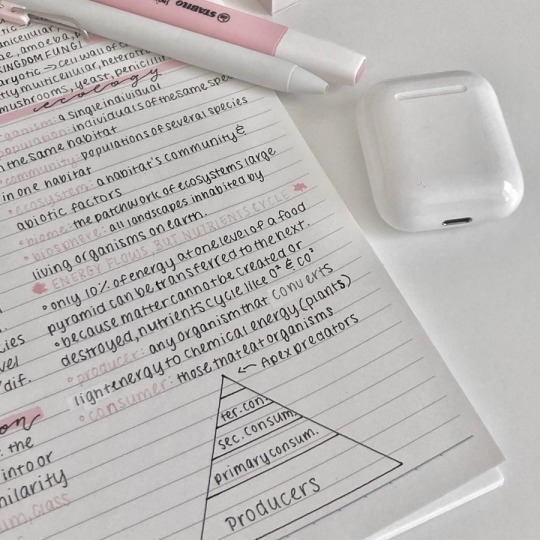 STABILO
KINGDOM FUNGI
cell wall of
multicellular, hetero
mushrooms, yeast, penicilli
ecology
organism: a single individual
population: individuals of the same spe
n the same habitat
community: populations of several species
in one habitat
ecosystem: a habitat's community &
abiotic factors
biome: the patchwork of ecosystems large
biosphere: all landscapes inhabited by
living organisms on earth.
ENERGY FLOWS BUT NUTRIENTS CYCLE
• only 10% of energy at one level of a food
pyramid can be transferred to the next.
• because matter cannot be created or
destroyed, nutrients cycle like O² & CO²
• producer: any organism that converts
light energy to chemical energy (plants)
• consumer: those that eat organisms
← Apex predators
ter. con.
sec. consum.
primary consum.
Producers
cies
vel
dif.
on
: the
into or
milarity